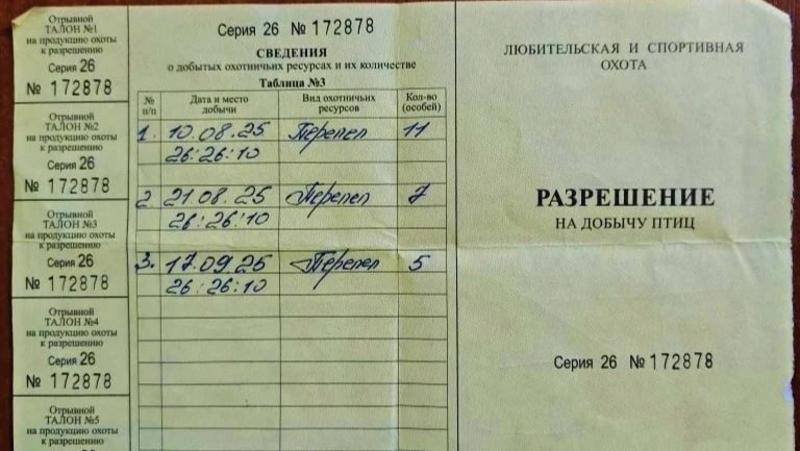 Отрывной
ТАЛОН №1
на продукцию охоты
к разрешению
Серия 26
№ 172878
Отрывной
ТАЛОН №2
на продукцию охоты
к разрешению
Серия 26
№ 172878
Отрывной
ТАЛОН №3
на продукцию охоты
к разрешению
Серия 26
№ 172878
Отрывной
ТАЛОН №4
на продукцию охоты
к разрешению
Серия 26
№ 172878
Отрывной
ТАЛОН №5
на продукцию охоты
к разрешению
Серия 26 № 172878
СВЕДЕНИЯ
о добытых охотничьих ресурсах и их количестве
Таблица №3
№ п/п Дата и место добычи Вид охотничьих ресурсов Кол-во (особей)
1. 10.08.25 Перепел 11
26:26:10
2 21.08.25 Перепел 7
26:26:10
3. 17.09.25 Перепел 5
26:26:10
ЛЮБИТЕЛЬСКАЯ И СПОРТИВНАЯ
ОХОТА
РАЗРЕШЕНИЕ
НА ДОБЫЧУ ПТИЦ
Серия 26 № 172878